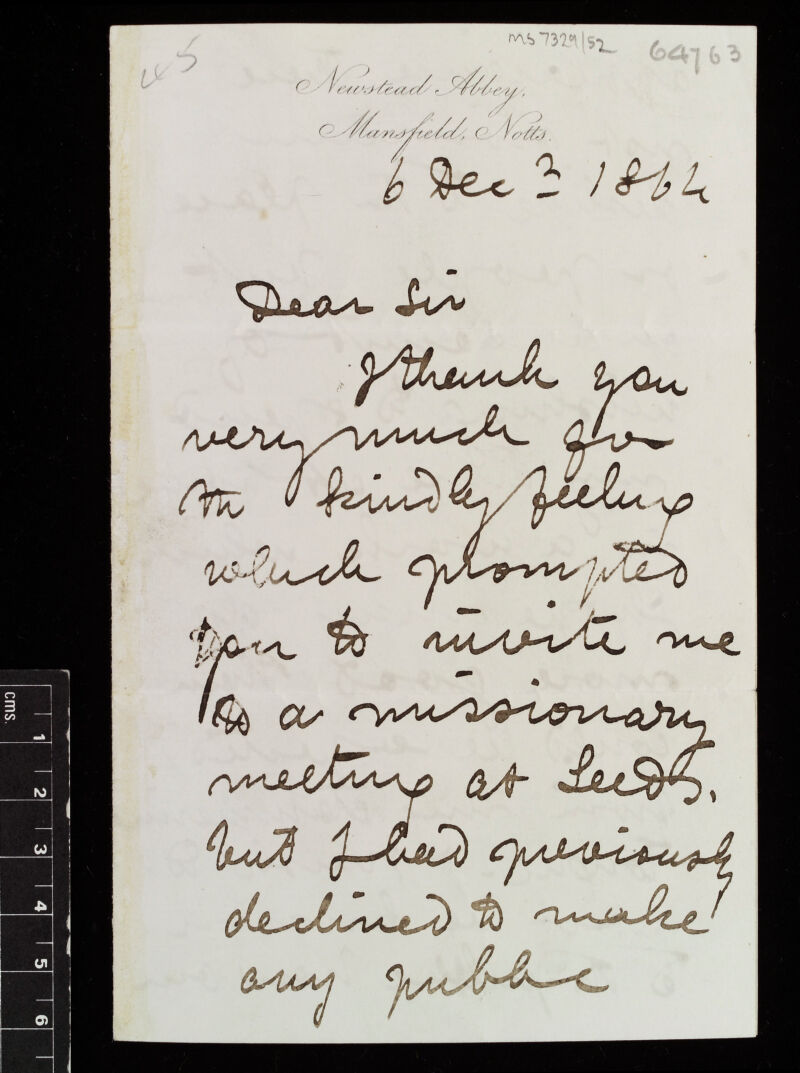 45
MS 7329/52
64763
Newstead Abbey,
Mansfield, Notts.
6 Decr 1864
Dear Sir
I thank you
very much for
the kindly feeling
which prompted
you to invite me
to a missionary
meeting at Leeds,
but I had previously
declined to make
any public
cms.
1
2
3
4
5
6